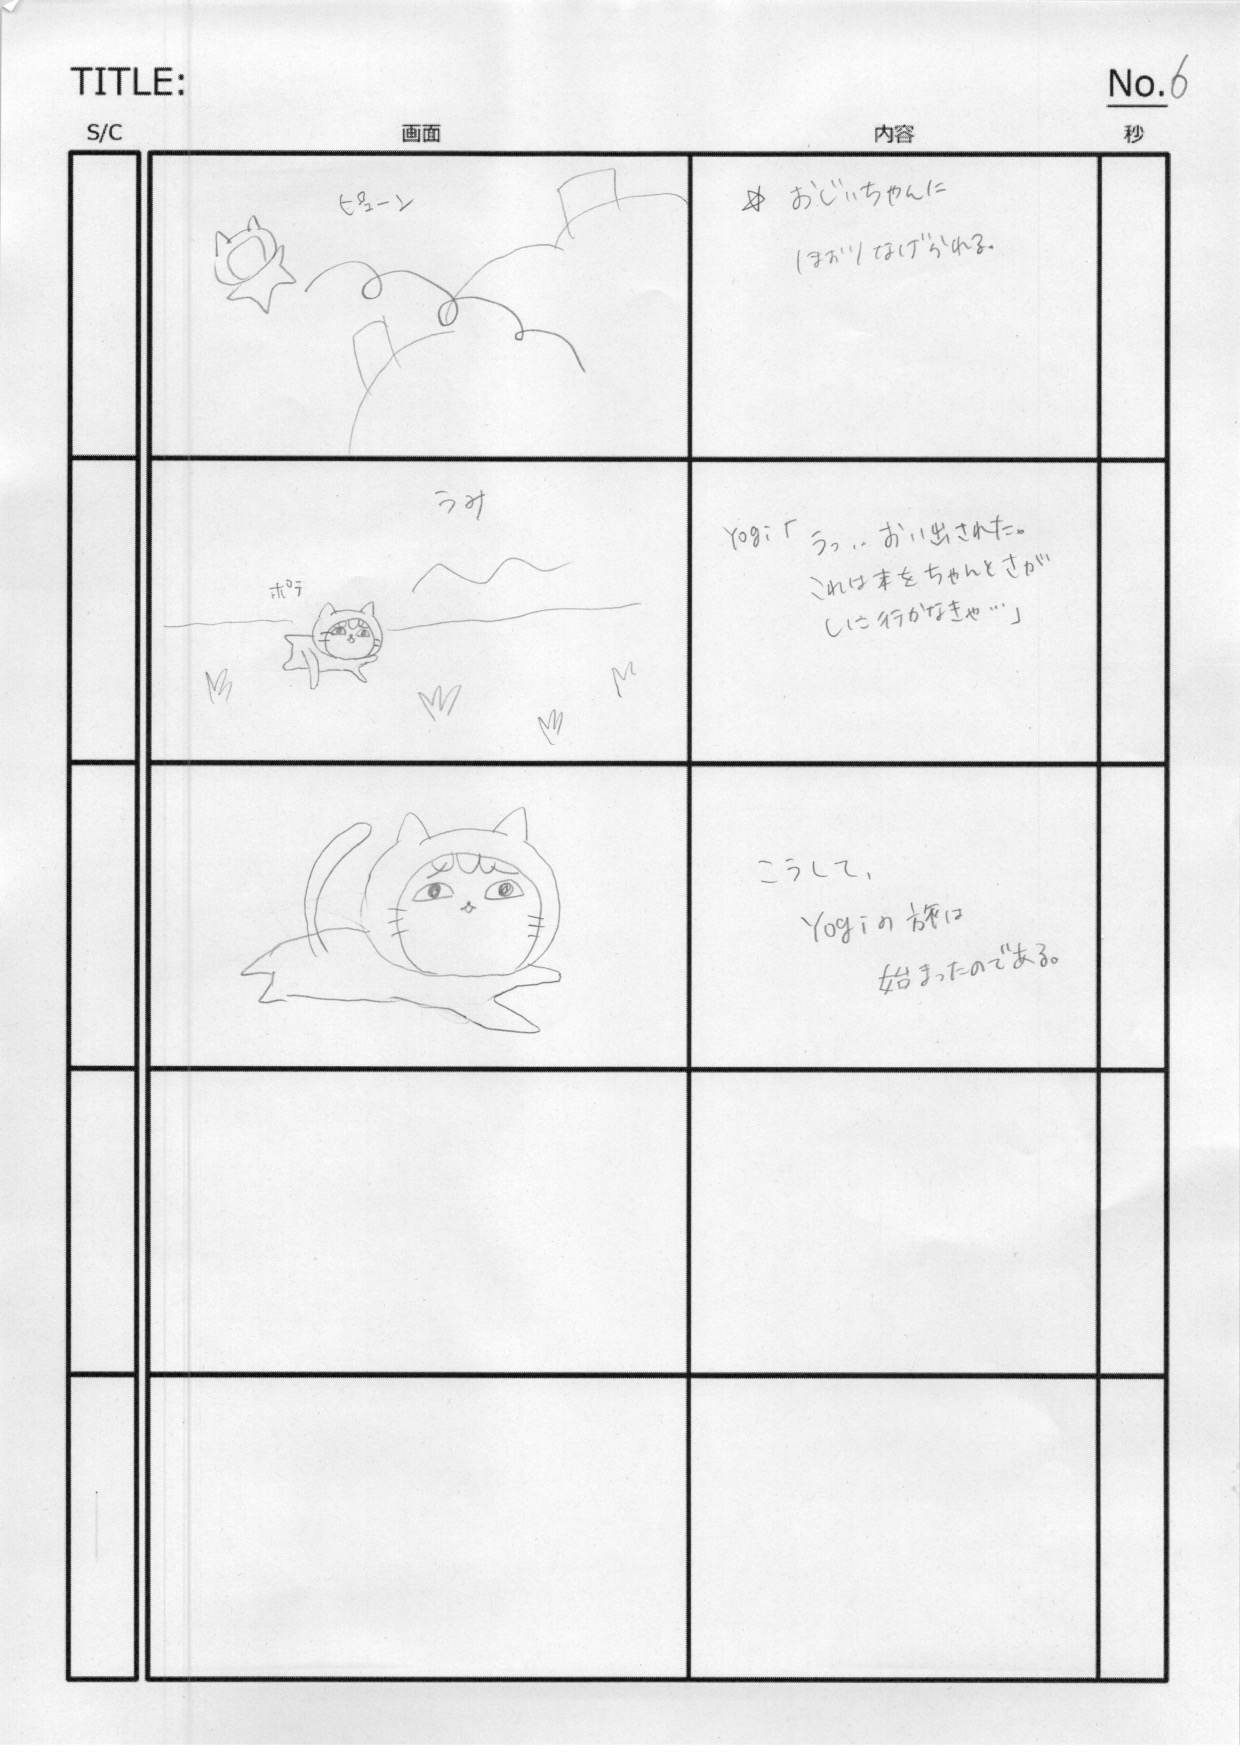 TITLE:
No.6
S/C
画面
内容
秒
ピューン
☆ おじいちゃんに
ほおりなげられる。
うみ
ポテ
Yogi「うっ.. おい出された。
これは本をちゃんとさが
しに行かなきゃ…」
こうして、
Yogiの旅は
始まったのである。